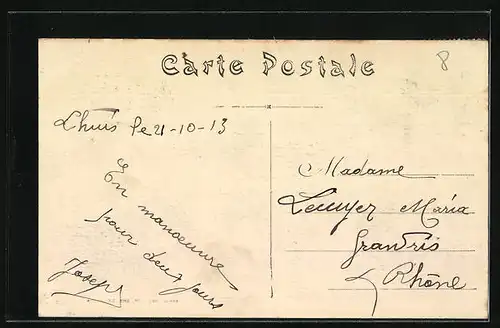 Carte Postale
8
Lhuis le 21-10-13
En manoeuvre
pour deux jours
Joseph
Madame
Maria
Grandris
Rhône